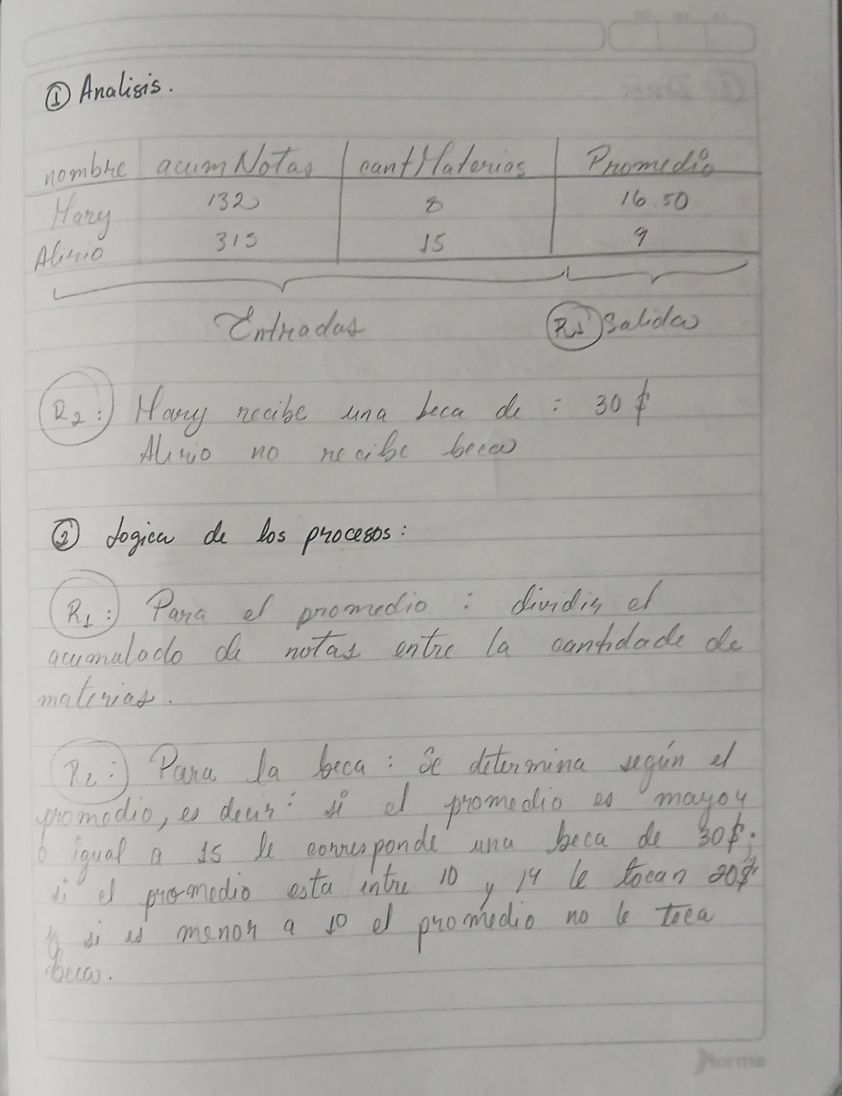 ① Analisis.
nombre acumNotas cantMaterias Promedio
Mary 132 8 16.50
Alirio 315 15 9
Entradas R1 Salida
R2: Mary recibe una beca de : 30 $
Alirio no recibe beca
② Logica de los procesos:
R1: Para el promedio : dividir el
acumulado de notas entre la cantidade de
materias.
R2: Para la beca : Se determina según el
promedio, es decir: si el promedio es mayor
o igual a 15 le corresponde una beca de 30$;
si el promedio esta entre 10 y 14 le tocan 20$
y si es menor a 10 el promedio no le toca
beca.
Norma